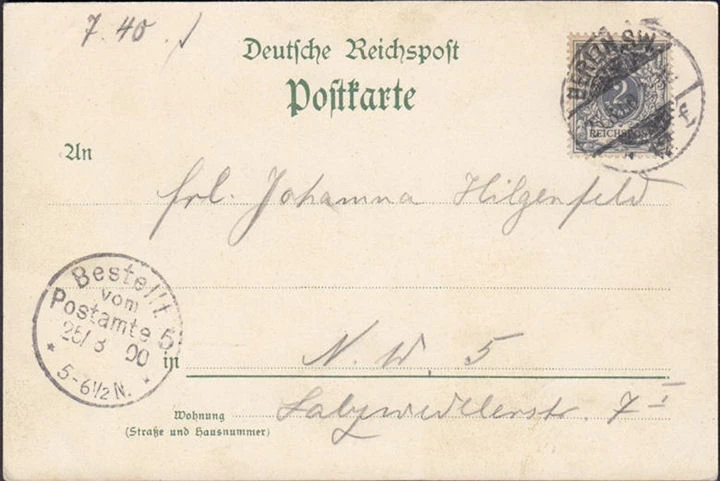 7.40.
Deutsche Reichspost
Postkarte
BERLIN SW.
2
REICHSPOST
An
Frl. Johanna Hilgenfeld
Bestellt
vom
Postamte 5
25/3 00
5-6½N.
in N. W. 5
Wohnung
(Straße und Hausnummer)
Salzwedlerstr. 7 I